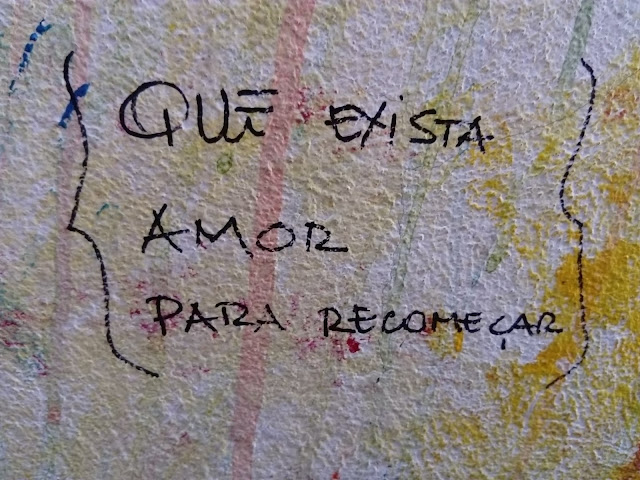 QUE EXISTA
AMOR
PARA RECOMEÇAR